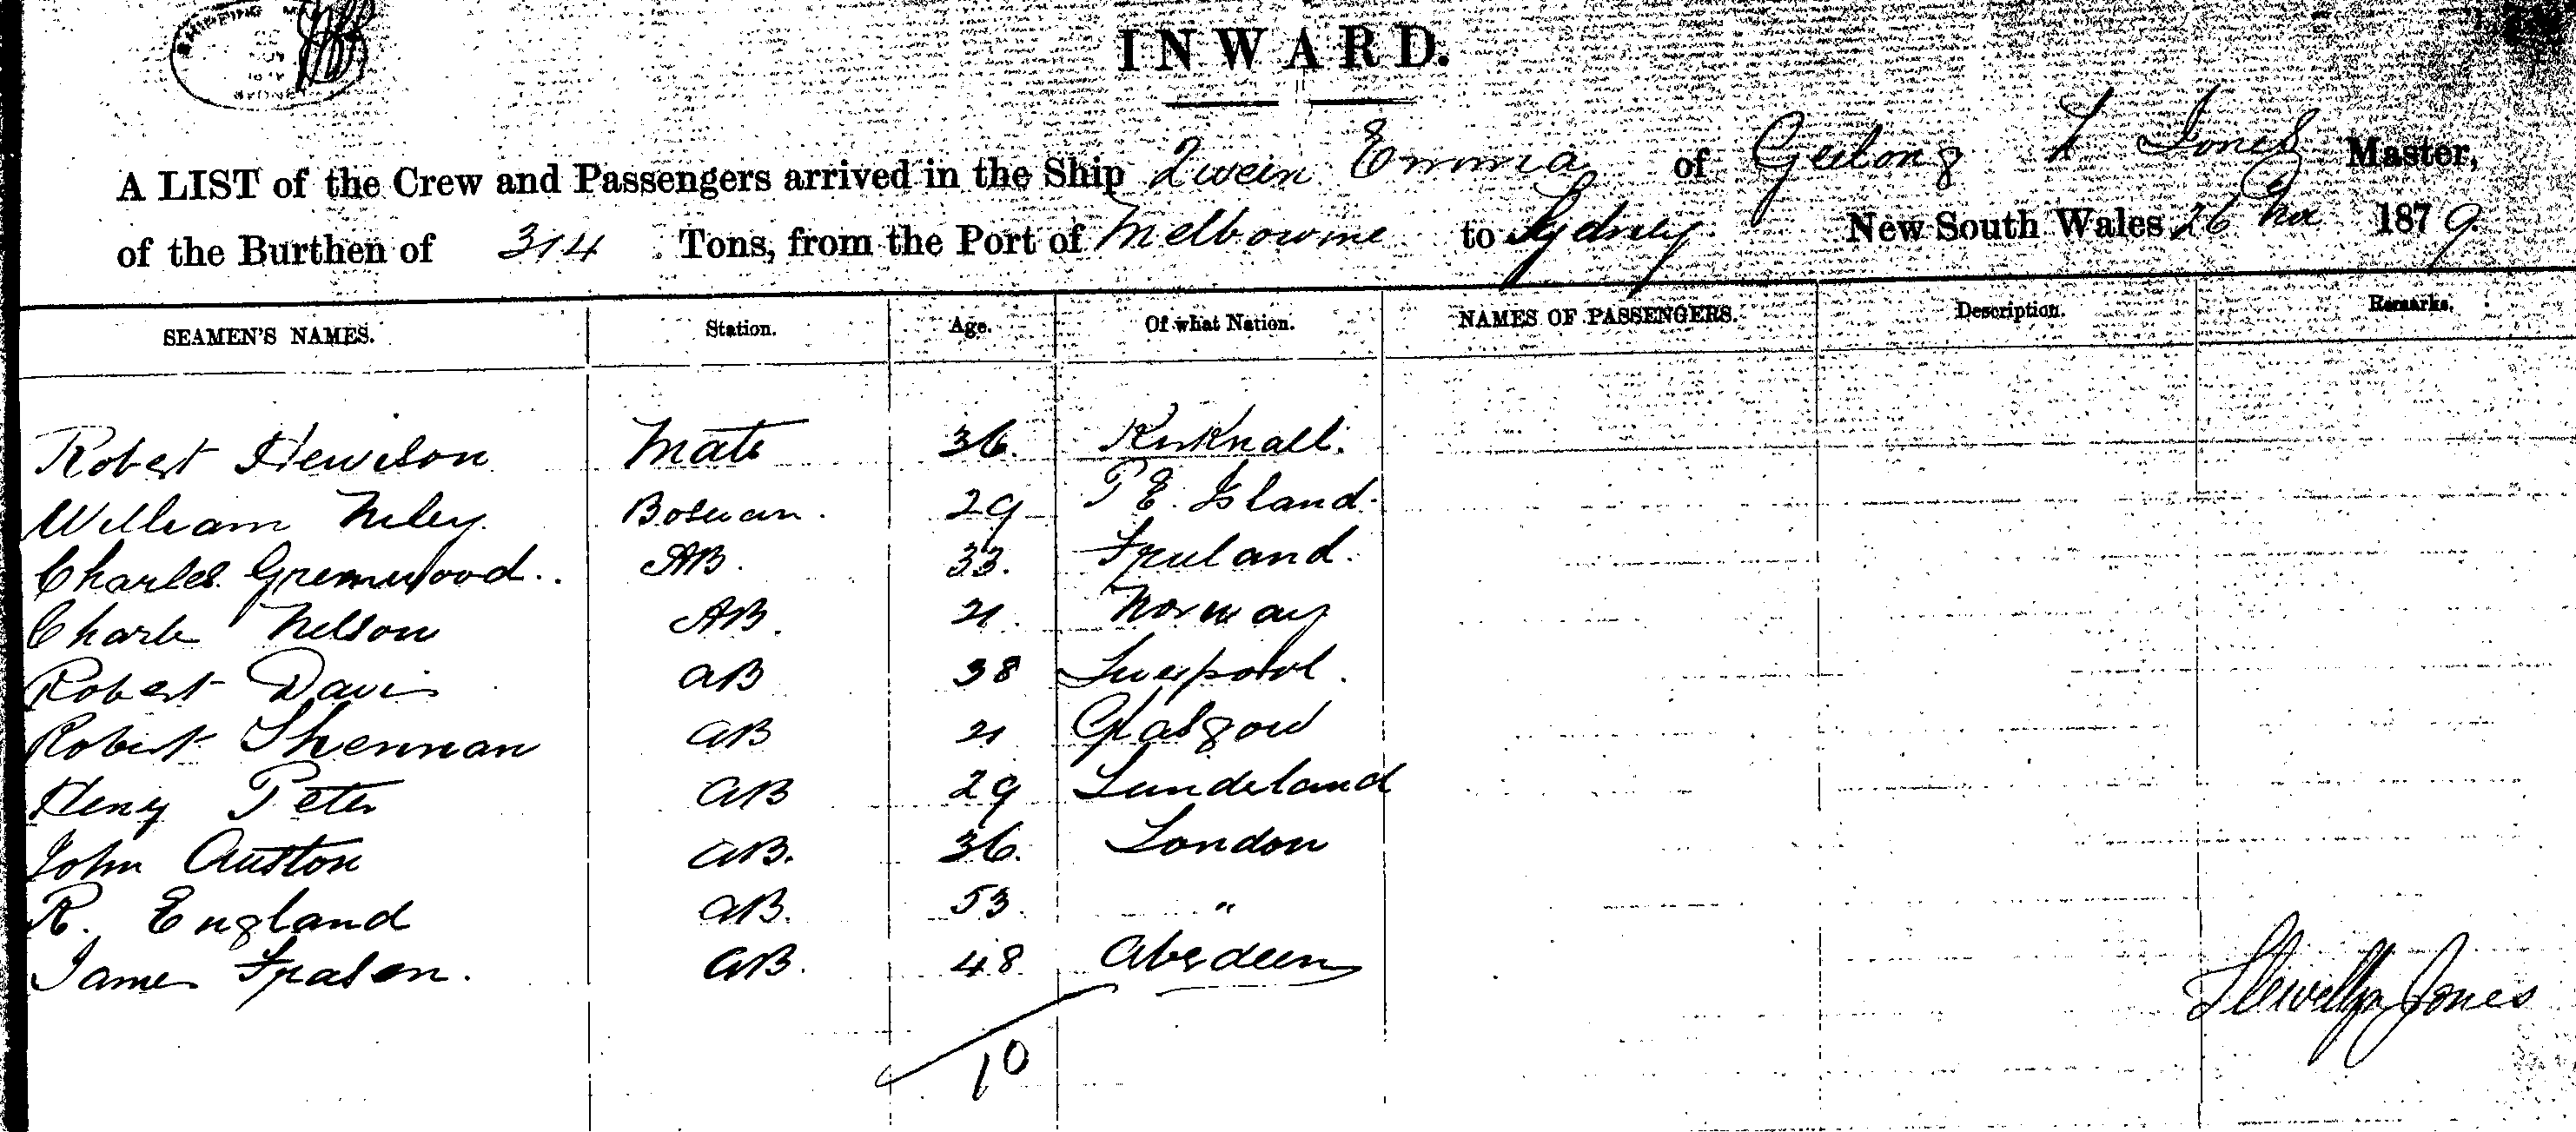 SHIPPING
SYDNEY
INWARD.
A LIST of the Crew and Passengers arrived in the Ship Queen Emma of Geelong L Jones Master,
of the Burthen of 314 Tons, from the Port of Melbourne to Sydney New South Wales 26 187 9.
SEAMEN'S NAMES. Station. Age. Of what Nation. NAMES OF PASSENGERS. Description. Remarks.
Robert Hewison Mate 36. Kirkwall.
William Bosuan. 29 P E. Island.
Charles Greenwood.. AB. 33. Ireland.
Charle Nelson AB. 21. Norway
Robert Davis AB 38 Liverpool.
Robert Shennan AB 21 Glasgow
Henry Peter AB 29 Sunderland
John Auston AB. 36. London
R. England AB. 53. "
James Fraser. AB. 48 Aberdeen
10
Llewellyn Jones